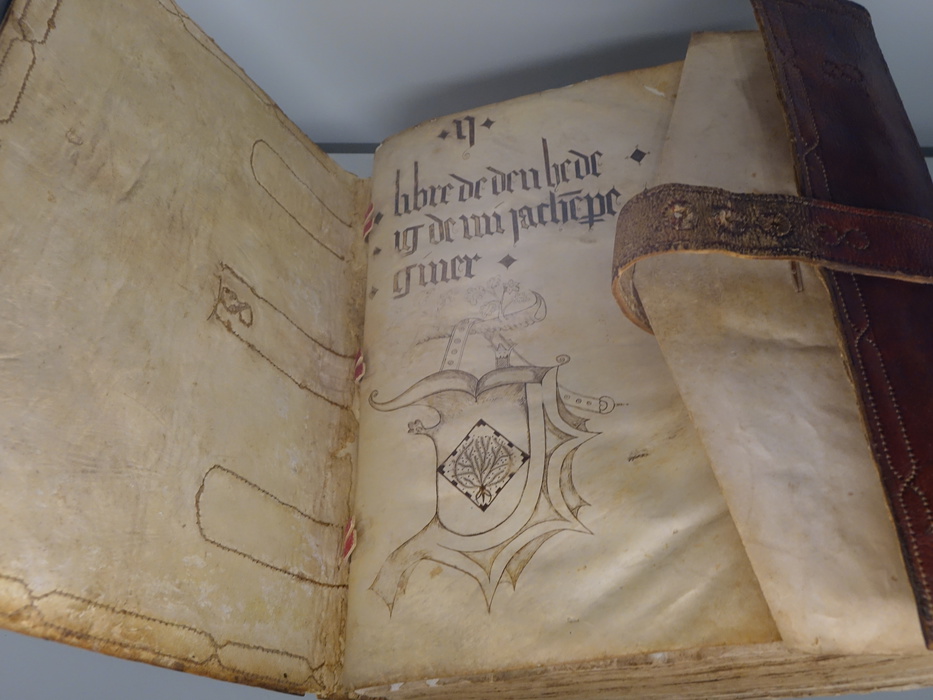 ij
libre de deu hede
ig de mi jach̄epe
giner